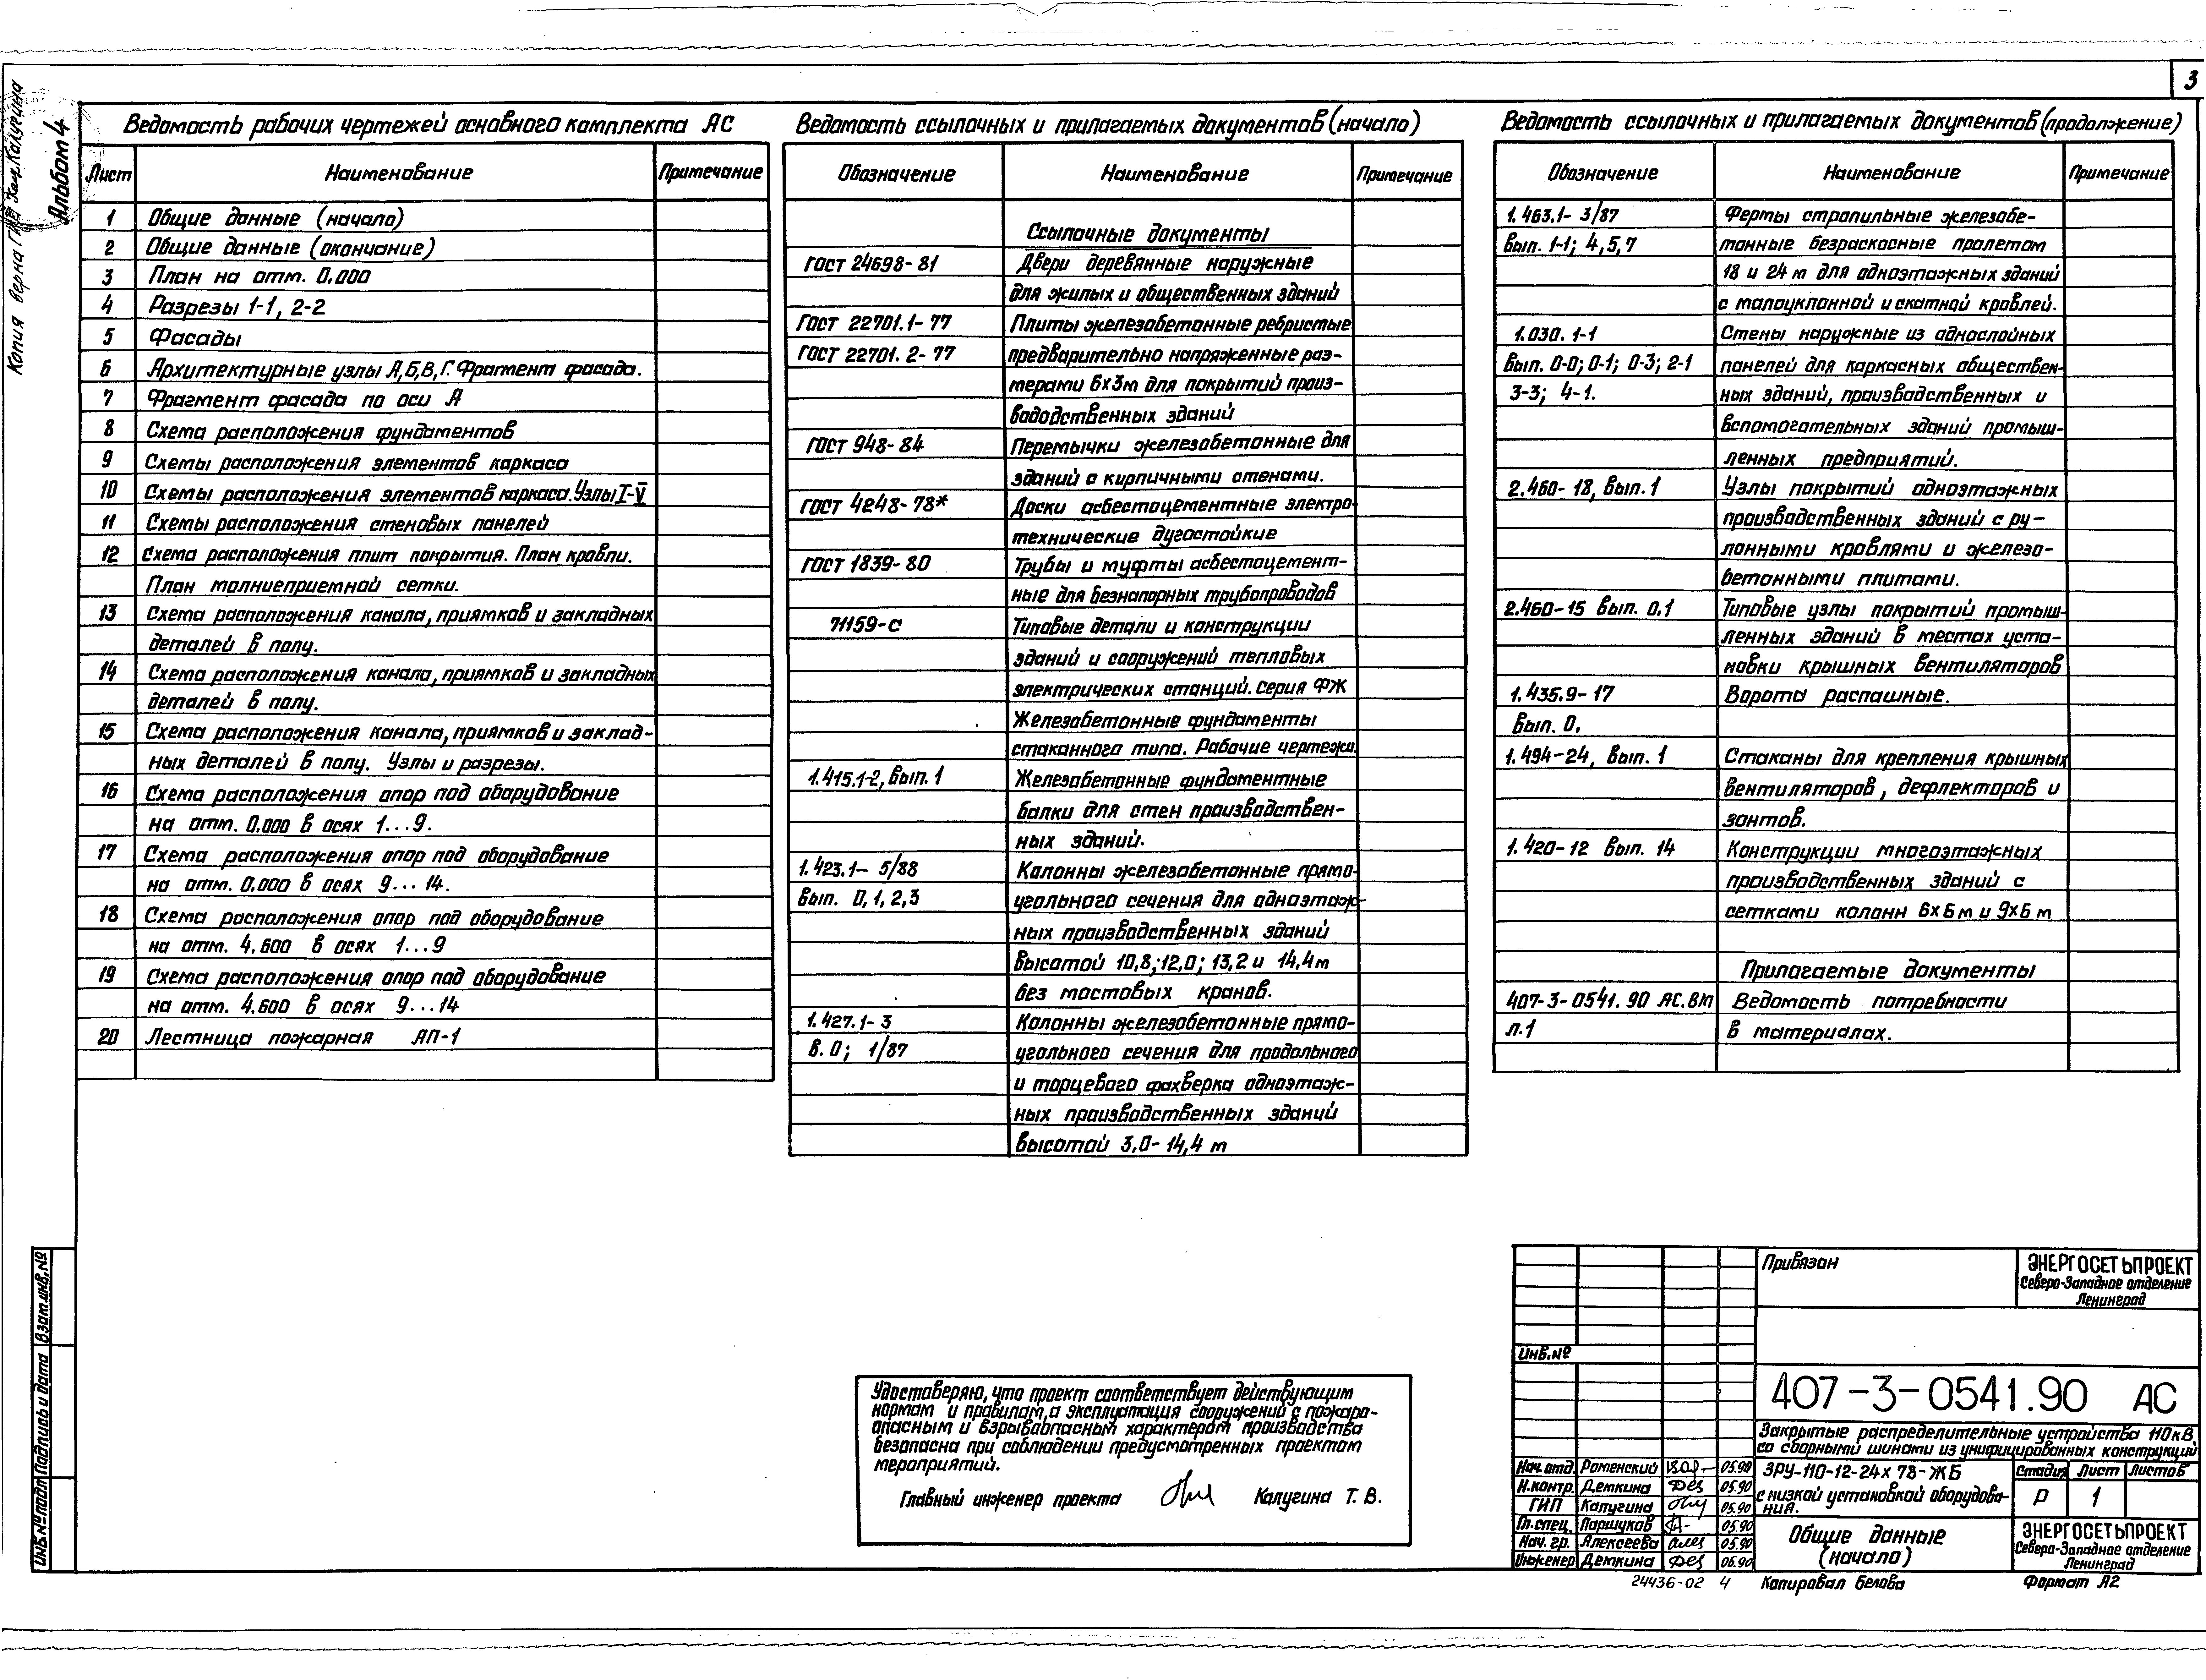 3
Копия верна ГИП Калугина
Альбом 4
Ведомость рабочих чертежей основного комплекта АС
Лист Наименование Примечание
1 Общие данные (начало)
2 Общие данные (окончание)
3 План на отм. 0.000
4 Разрезы 1-1, 2-2
5 Фасады
6 Архитектурные узлы А,Б,В,Г. Фрагмент фасада.
7 Фрагмент фасада по оси А
8 Схема расположения фундаментов
9 Схемы расположения элементов каркаса
10 Схемы расположения элементов каркаса. Узлы I-V
11 Схемы расположения стеновых панелей
12 Схема расположения плит покрытия. План кровли.
План молниеприемной сетки.
13 Схема расположения канала, приямков и закладных
деталей в полу.
14 Схема расположения канала, приямков и закладных
деталей в полу.
15 Схема расположения канала, приямков и заклад-
ных деталей в полу. Узлы и разрезы.
16 Схема расположения опор под оборудование
на отм. 0.000 в осях 1...9.
17 Схема расположения опор под оборудование
на отм. 0.000 в осях 9...14.
18 Схема расположения опор под оборудование
на отм. 4.600 в осях 1...9
19 Схема расположения опор под оборудование
на отм. 4.600 в осях 9...14
20 Лестница пожарная АП-1
Ведомость ссылочных и прилагаемых документов (начало)
Обозначение Наименование Примечание
Ссылочные документы
ГОСТ 24698-81 Двери деревянные наружные
для жилых и общественных зданий
ГОСТ 22701.1-77 Плиты железобетонные ребристые
ГОСТ 22701.2-77 предварительно напряженные раз-
мерами 6х3м для покрытий произ-
вододственных зданий
ГОСТ 948-84 Перемычки железобетонные для
зданий с кирпичными стенами.
ГОСТ 4248-78* Доски асбестоцементные электро-
технические дугостойкие
ГОСТ 1839-80 Трубы и муфты асбестоцемент-
ные для безнапорных трубопроводов
71159-С Типовые детали и конструкции
зданий и сооружений тепловых
электрических станций. Серия ФЖ
Железобетонные фундаменты
стаканного типа. Рабочие чертежи.
1.415.1-2, вып. 1 Железобетонные фундаментные
балки для стен производствен-
ных зданий.
1.423.1-5/88 Колонны железобетонные прямо-
вып. 0,1,2,3 угольного сечения для одноэтаж-
ных производственных зданий
высотой 10,8; 12,0; 13,2 и 14,4м
без мостовых кранов.
1.427.1-3 Колонны железобетонные прямо-
в.0; 1/87 угольного сечения для продольного
и торцевого фахверка одноэтаж-
ных производственных зданий
высотой 3,0-14,4 м
Ведомость ссылочных и прилагаемых документов (продолжение)
Обозначение Наименование Примечание
1.463.1-3/87 Фермы стропильные железобе-
вып. 1-1; 4,5,7 тонные безраскосные пролетом
18 и 24 м для одноэтажных зданий
с малоуклонной и скатной кровлей.
1.030.1-1 Стены наружные из однослойных
вып. 0-0; 0-1; 0-3; 2-1 панелей для каркасных обществен-
3-3; 4-1. ных зданий, производственных и
вспомогательных зданий промыш-
ленных предприятий.
2.460-18, вып. 1 Узлы покрытий одноэтажных
производственных зданий с ру-
лонными кровлями и железо-
бетонными плитами.
2.460-15 вып. 0.1 Типовые узлы покрытий промыш-
ленных зданий в местах уста-
новки крышных вентиляторов
1.435.9-17 Ворота распашные.
вып. 0.
1.494-24, вып. 1 Стаканы для крепления крышных
вентиляторов, дефлекторов и
зонтов.
1.420-12 вып. 14 Конструкции многоэтажных
производственных зданий с
сетками колонн 6х6м и 9х6м
Прилагаемые документы
407-3-0541.90 АС.ВМ Ведомость потребности
л.1 в материалах.
Удостоверяю, что проект соответствует действующим
нормам и правилам, а эксплуатация сооружений с пожаро-
опасным и взрывоопасным характером производства
безопасна при соблюдении предусмотренных проектом
мероприятий.
Главный инженер проекта Калугина Т. В.
Инв.№ подл Подпись и дата Взам.инв.№
Привязан
ЭНЕРГОСЕТЬПРОЕКТ
Северо-Западное отделение
Ленинград
Инв.№
407-3-0541.90 АС
Закрытые распределительные устройства 110кВ
со сборными шинами из унифицированных конструкций
Нач.отд. Роменский 05.90
Н.контр. Демкина 05.90
ГИП Калугина 05.90
Гл.спец. Паршуков 05.90
Нач.гр. Алексеева 05.90
Инженер Демкина 05.90
ЗРУ-110-12-24х78-ЖБ
с низкой установкой оборудова-
ния.
Стадия Лист Листов
Р 1
Общие данные
(начало)
ЭНЕРГОСЕТЬПРОЕКТ
Северо-Западное отделение
Ленинград
24436-02 4 Копировал Белова Формат А2